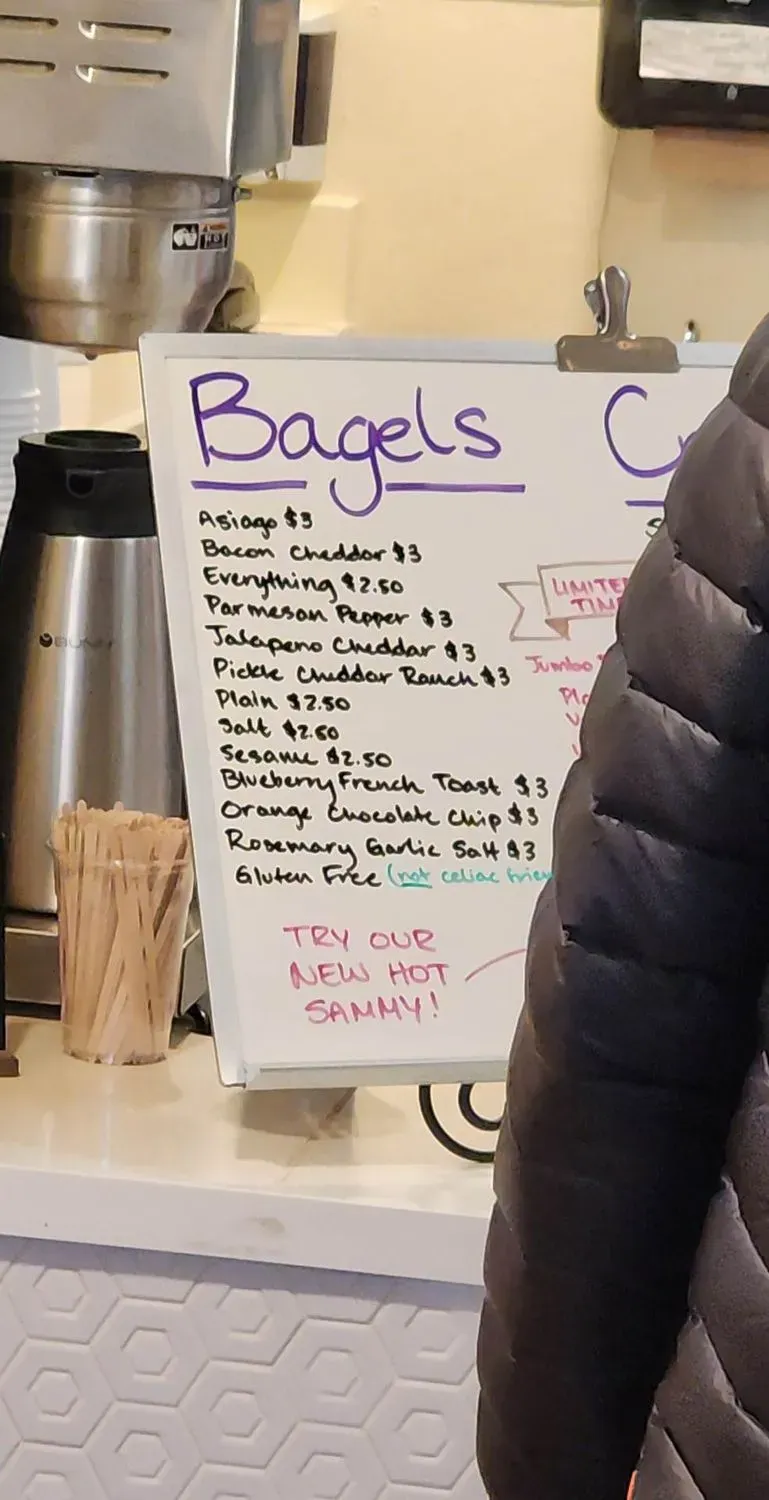 Bagels
Asiago $3
Bacon Cheddar $3
Everything $2.50
Parmesan Pepper $3
Jalapeno Cheddar $3
Pickle Cheddar Ranch $3
Plain $2.50
Salt $2.50
Sesame $2.50
Blueberry French Toast $3
Orange Chocolate Chip $3
Rosemary Garlic Salt $3
Gluten Free (not celiac
TRY OUR
NEW HOT
SAMMY!
Jumbo
BUNN
HOT